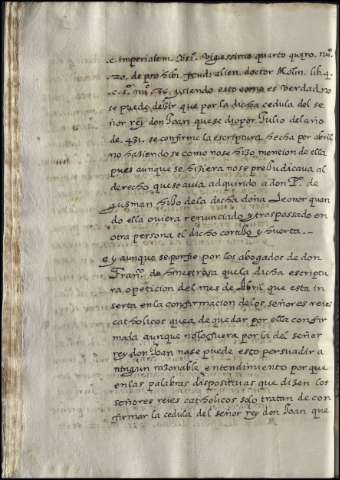 c. imperialem. Vigessimo quarto quiro. nu.
20. de prohibi. feudi alien. doctor Molin. lib. 4.
c. nu. 36. siendo esto como es verdad no
se puede desir que por la dicha cedula del se
ñor rey don Joan que se dio por Julio del año
de 431. se confirme la escriptura hecha por abril
no hasiendose como no se hiso mencion de ella
pues aunque se hisiera no se prejudicava al
derecho que se avia adquirido a don P.º de
gusman hijo de la dicha doña Leonor quan
do ella oviera renunciado y traspassado en
otra persona el dicho corelbo y huerta.
e y aunque se porfie por los abogados de don
Fran.co de hinestrosa que la dicha escriptu
ra o peticion del mes de Abril que esta in
serta en la confirmacion de los señores reies
catholicos que a de quedar por ella confir
mada aunque no lo fuera por la del señor
rey don Joan no se puede esto persuadir a
ningun rasonable entendimiento porque
en las palabras dispositivas que disen los
señores reies catholicos solo tratan de con
firmar la cedula del señor rey don Joan que